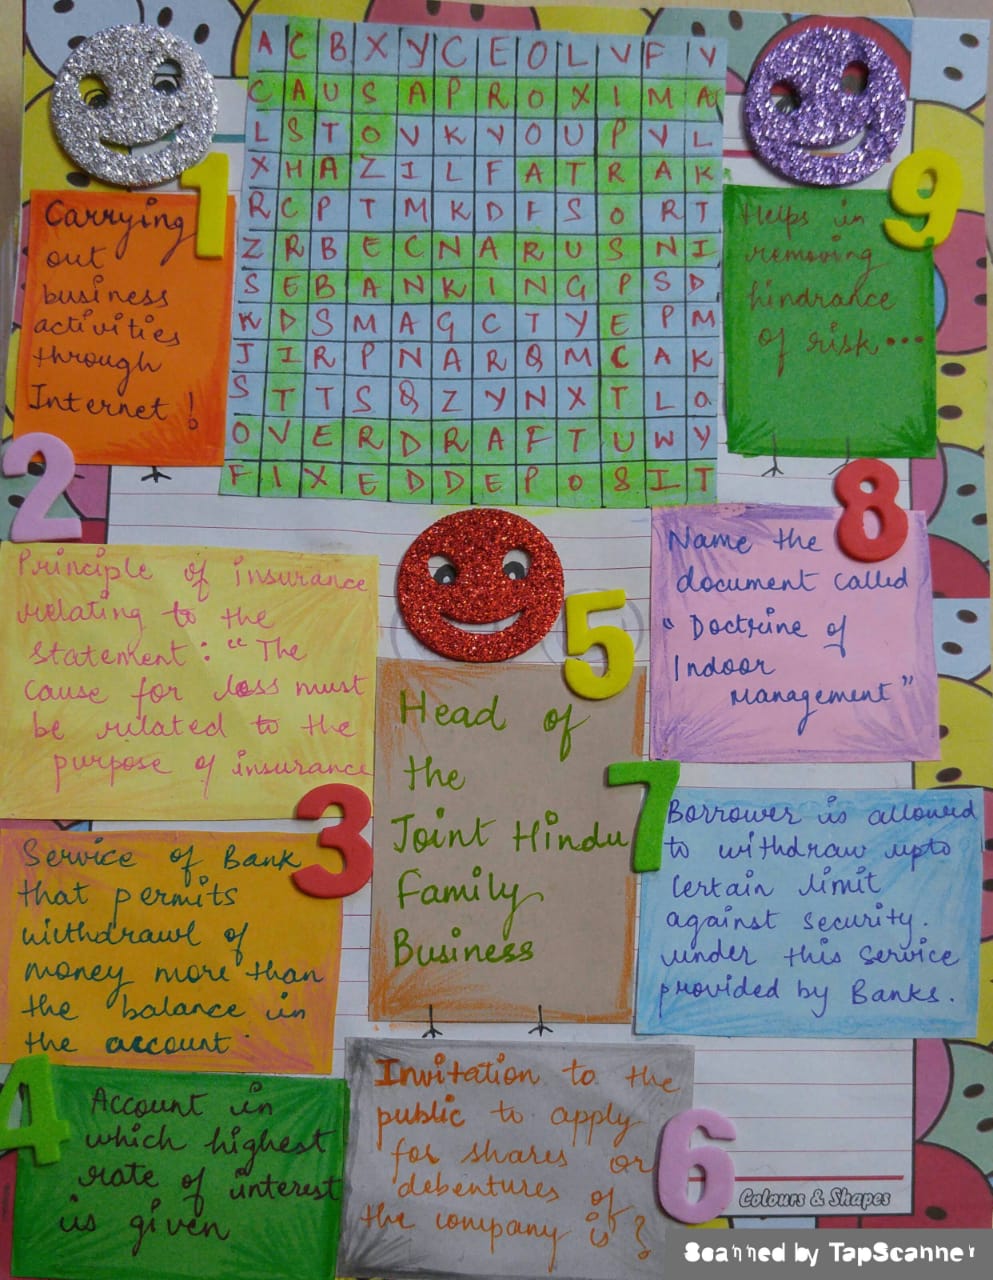 A C B X Y C E O L V F V
C A U S A P R O X I M A
L S T O V K Y O U P V L
X H A Z I L F A T R A K
R C P T M K D F S O R T
Z R B E C N A R U S N I
S E B A N K I N G P S D
K D S M A G C T Y E P M
J I R P N A R Q M C A K
S T T S Q Z Y N X T L O
O V E R D R A F T U W Y
F I X E D D E P O S I T
1
Carrying
out
business
activities
through
Internet!
2
Principle of insurance
relating to the
statement: "The
cause for loss must
be related to the
purpose of insurance
3
Service of Bank
that permits
withdrawl of
money more than
the balance in
the account.
4
Account in
which highest
rate of interest
is given
5
Head of
the
Joint Hindu
Family
Business
6
Invitation to the
public to apply
for shares or
debentures of
the company is?
7
Borrower is allowed
to withdraw upto
Certain limit
against security.
under this service
provided by Banks.
8
Name the
document called
"Doctrine of
Indoor
Management"
9
Helps in
removing
hindrance
of risk...
Colours & Shapes
Scanned by TapScanner